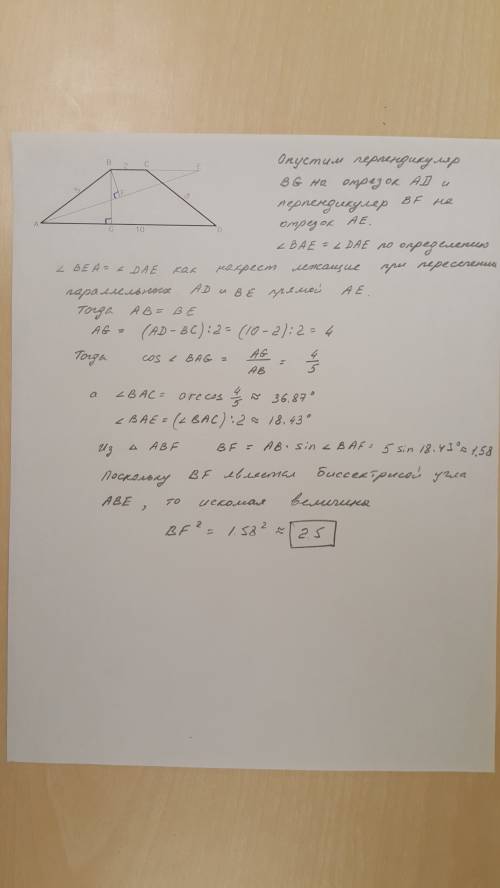 B 2 C E
5 F 5
A G 10 D
Опустим перпендикуляр
BG на отрезок AD и
перпендикуляр BF на
отрезок AE.
∠BAE = ∠DAE по определению
∠BEA = ∠DAE как накрест лежащие при пересечении
параллельных AD и BE прямой AE.
Тогда AB = BE
AG = (AD - BC) : 2 = (10 - 2) : 2 = 4
Тогда cos ∠BAG = AG/AB = 4/5
а ∠BAC = arccos 4/5 ≈ 36.87°
∠BAE = (∠BAC) : 2 ≈ 18.43°
Из △ABF BF = AB · sin ∠BAF = 5 sin 18.43° ≈ 1,58
Поскольку BF является биссектрисой угла
ABE, то искомая величина
BF² = 1.58² ≈ 2.5